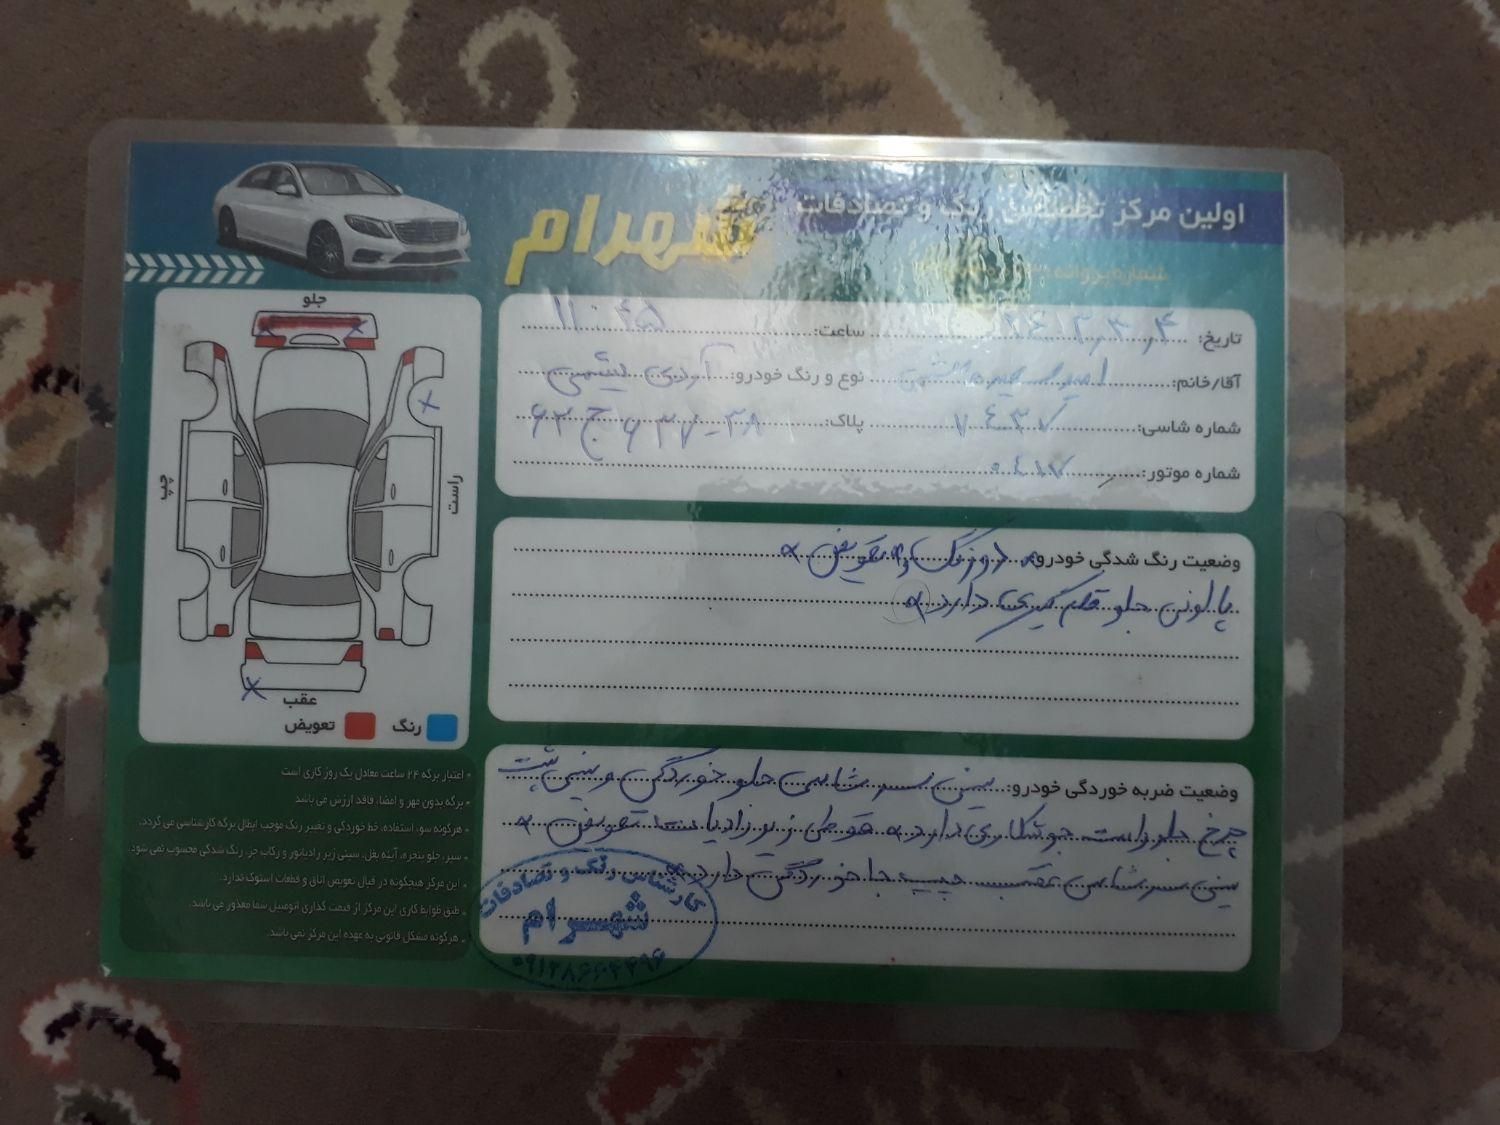 اولین مرکز تخصصی رنگ و تصادفات
شهرام
شماره پروانه:
تاریخ: ساعت: ۱۱:۴۵
آقا/خانم: نوع و رنگ خودرو: آردی یشمی
شماره شاسی: ۷۴۳۷ پلاک: ۶۲ ج ۶۳۷-۳۸
شماره موتور:
وضعیت رنگ شدگی خودرو: دور رنگ و تعویض
پالونی جلو قلم گیری دارد
وضعیت ضربه خوردگی خودرو: سینی سرشاسی جلو خوردگی و سینی پشت
چرخ جلو راست جوشکاری دارد قوطی زیر رادیات تعویض
سینی سرشاسی عقب چپ جا خوردگی دارد
کارشناس رنگ و تصادفات
شهرام
جلو
چپ
راست
عقب
رنگ
تعویض
• اعتبار برگه ۲۴ ساعت معادل یک روز کاری است
• برگه بدون مهر و امضاء فاقد ارزش می باشد
• هرگونه سوء استفاده، خط خوردگی و تغییر رنگ موجب ابطال برگه کارشناسی می گردد.
• سپر، جلو پنجره، آینه بغل، سینی زیر رادیاتور و رکاب جزء رنگ شدگی محسوب نمی شود.
• این مرکز هیچگونه در قبال تعویض اتاق و قطعات استوک ندارد.
• طبق ضوابط کاری این مرکز از قیمت گذاری اتومبیل شما معذور می باشد.
• هرگونه مشکل قانونی به عهده این مرکز نمی باشد.